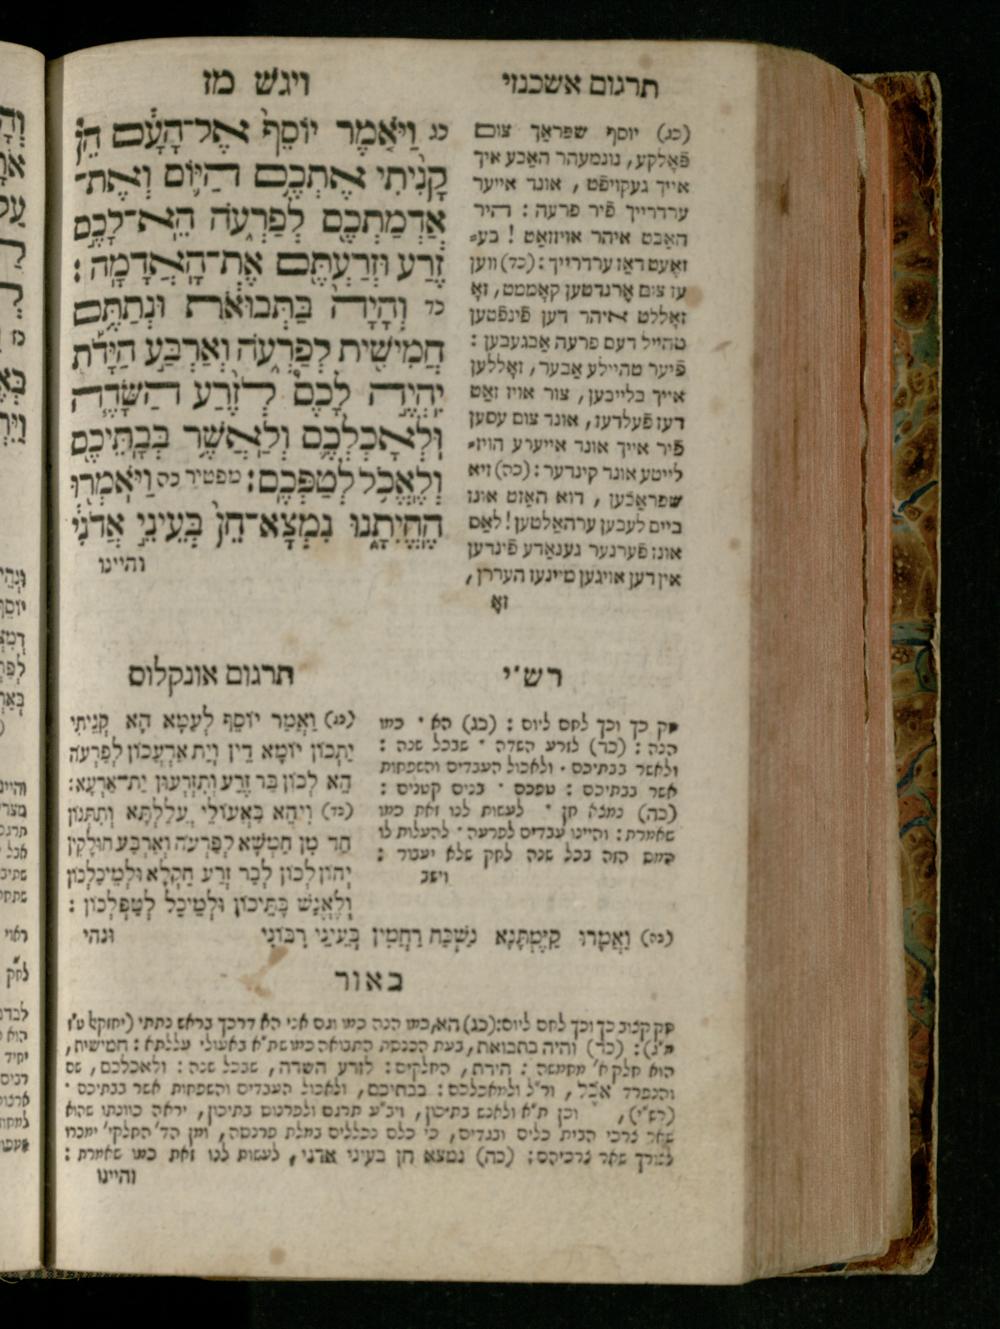 תרגום אשכנזי
ויגש מז
כג וַיֹּאמֶר יוֹסֵף אֶל־הָעָם הֵן
קָנִיתִי אֶתְכֶם הַיּוֹם וְאֶת־
אַדְמַתְכֶם לְפַרְעֹה הֵא־לָכֶם
זֶרַע וּזְרַעְתֶּם אֶת־הָאֲדָמָה :
כד וְהָיָה בַּתְּבוּאֹת וּנְתַתֶּם
חֲמִישִׁית לְפַרְעֹה וְאַרְבַּע הַיָּדֹת
יִהְיֶה לָכֶם לְזֶרַע הַשָּׂדֶה
וּלְאָכְלְכֶם וְלַאֲשֶׁר בְּבָתֵּיכֶם
וְלֶאֱכֹל לְטַפְּכֶם : מפטיר כה וַיֹּאמְרוּ
הֶחֱיִתָנוּ נִמְצָא־חֵן בְּעֵינֵי אֲדֹנִי
והיינו
(כג) יוסף שפראַך צום
פֿאָלקע, נונמעהר האַבע איך
אייך געקויפֿט, אונד אייער
ערדרייך פֿיר פרעה : היר
האַבט איהר אויזזאַט ! בע־
זאֶעט דאז ערדרייך : (כד) ווען
עז צום אֶרנדטען קאָממט, זאָ
זאָללט איהר דען פֿינפֿטען
טהייל דעם פרעה אַבגעבען :
פֿיער טהיילע אַבער, זאָללען
אייך בלייבען, צור אויז זאַט
דעז פֿעלדעז, אונד צום עסען
פֿיר אייך אונד אייערע הויז־
לייטע אונד קינדער : (כה) זיא
שפראַכען, דוא האַזט אונז
ביים לעבען ערהאַלטען ! לאַס
אונז פֿערנער גענאַדע פֿינדען
אין דען אויגען מיינעז העררן,
זאָ
רש״י
חק כך וכך לחם ליום : (כג) הא · כמו
הנה : (כד) לזרע השדה · שבכל שנה :
ולאשר בבתיכם · ולאכול העבדים והשפחות
אשר בבתיכם : טפכם · בנים קטנים :
(כה) נמצא חן · לעשות לנו זאת כמו
שאמרת : והיינו עבדים לפרעה · להעלות לו
המס הזה בכל שנה לחק שלא יעבור :
וישב
תרגום אונקלוס
(כג) וַאֲמַר יוֹסֵף לְעַמָּא הָא קְנֵיתִי
יַתְכוֹן יוֹמָא דֵין וְיָת אַרְעֲכוֹן לְפַרְעֹה
הָא לְכוֹן בַּר זַרְעָא וְתִזְרְעוּן יַת־אַרְעָא :
(כד) וִיהֵא בְּאַעוֹלֵי עֲלַלְתָּא וְתִתְּנוּן
חַד מִן חַמְשָׁא לְפַרְעֹה וְאַרְבַּע חוּלָקִין
יְהוֹן לְכוֹן לְבַר זְרַע חַקְלָא וּלְמֵיכַלְכוֹן
וְלֶאֱנָשׁ בָּתֵּיכוֹן וּלְמֵיכַל לְטַפְלְכוֹן :
(כה) וַאֲמָרוּ קַיֵּמְתָּנָא נַשְׁכַּח רַחֲמִין בְּעֵינֵי רִבּוֹנִי ונהי
באור
חק קצוב כך וכך לחם ליום : (כג) הא, כמו הנה כמו וגם אני הא דרכך בראש נתתי (יחזקאל ט״ז
מ״ג) : (כד) והיה בתבואת, בעת הכנסת התבואה כמו שת״א באעולי עללתא : חמישית,
הוא חלק א׳ מחמשה : הידת, החלקים : לזרע השדה, שבכל שנה : ולאכלכם, שם
והנפרד אכל, ור״ל ולמאכלכם : בבתיכם, ולאכול העבדים והשפחות אשר בבתיכם ·
(רש״י), וכן ת״א ולאנש בתיכון, ויב״ע תרגם ולפרנוס בתיכון, יראה כוונתו שהוא
שאר צרכי הבית כלים ובגדים, כי כלם נכללים במלת פרנסה, ומן הד׳ החלקי׳ ימכרו
לצורך שאר צרכיהם : (כה) נמצא חן בעיני אדני, לעשות לנו זאת כמו שאמרת :
והיינו